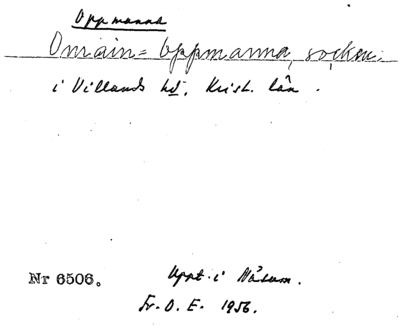 Oppmanna
Omain = Oppmanna, socken.
i Villands hd, Krist. län.
Nr 6506. Uppt. i Näsum.
Fr. O. E. 1956.